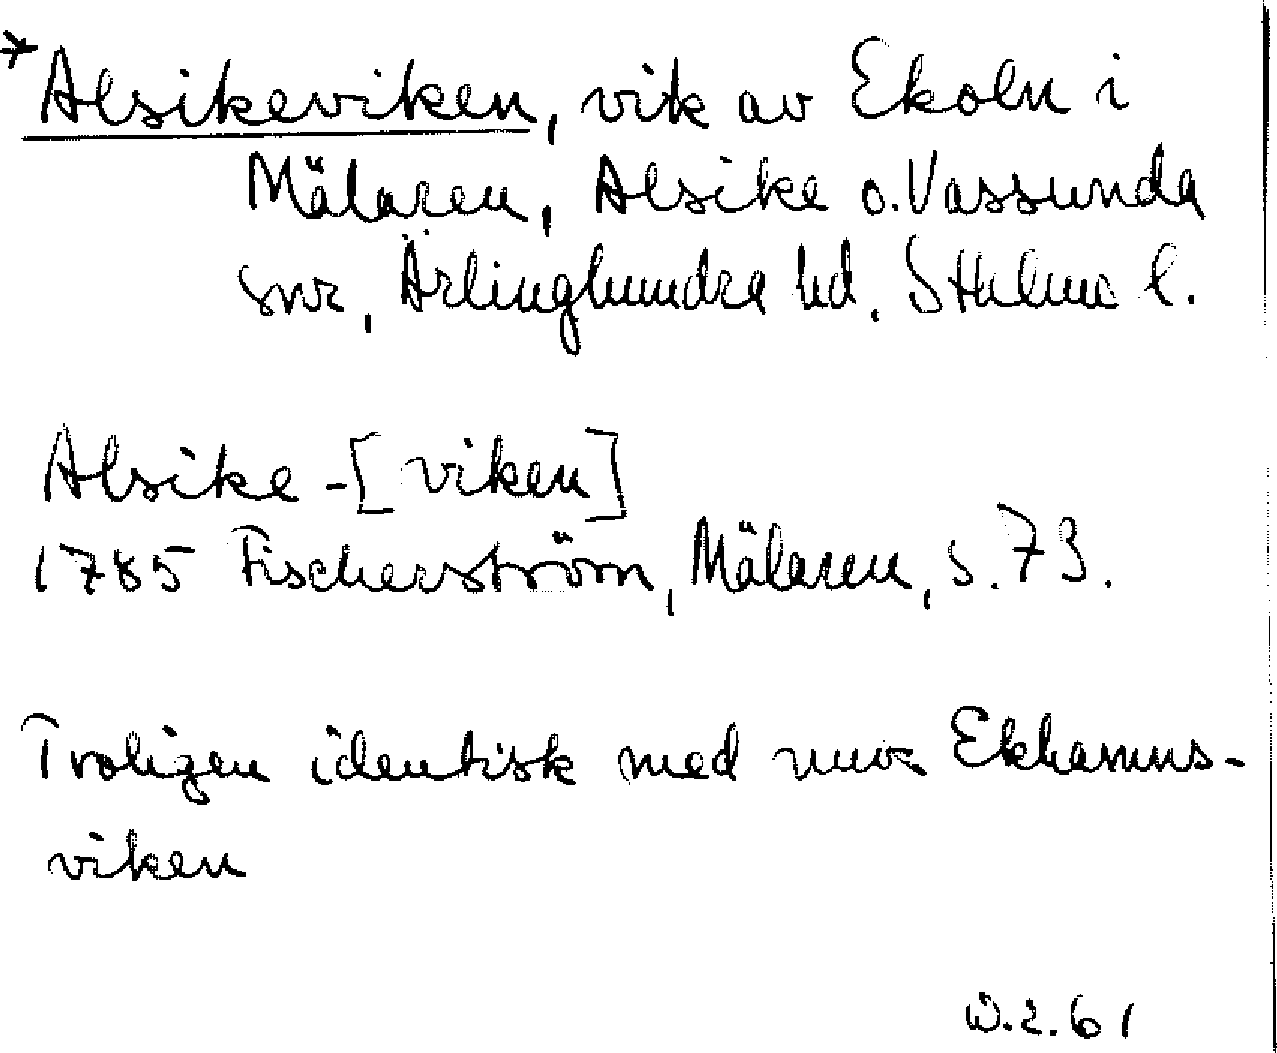 *Alsikeviken, vik av Ekoln i
Mälaren, Alsike o. Vassunda
snr, Ärlinghundra hd, Sthlms l.
Alsike-[viken]
1785 Fischerström, Mälaren, s. 73.
Troligen identisk med nuv. Ekhamns-
viken
2.61